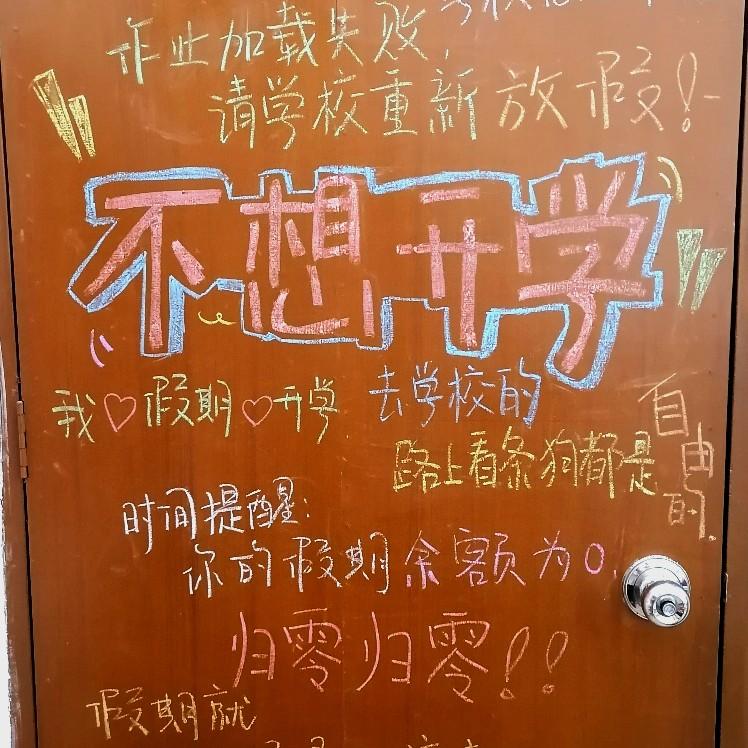 作业加载失败,
请学校重新放假!
不想开学
我♡假期♡开学
去学校的
路上看条狗都是
自由的.
时间提醒:
你的假期余额为0.
归零归零!!
假期就